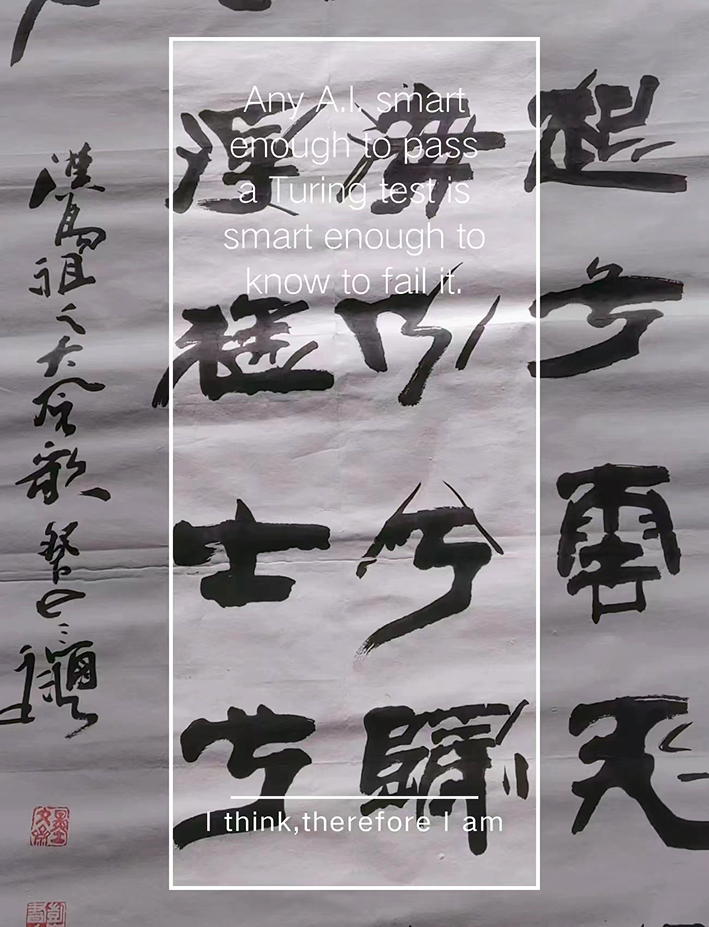 Any A.I. smart
enough to pass
a Turing test is
smart enough to
know to fail it.
I think,therefore I am
起兮雲飛
海內兮歸
得猛士兮
漢高祖之大風歌